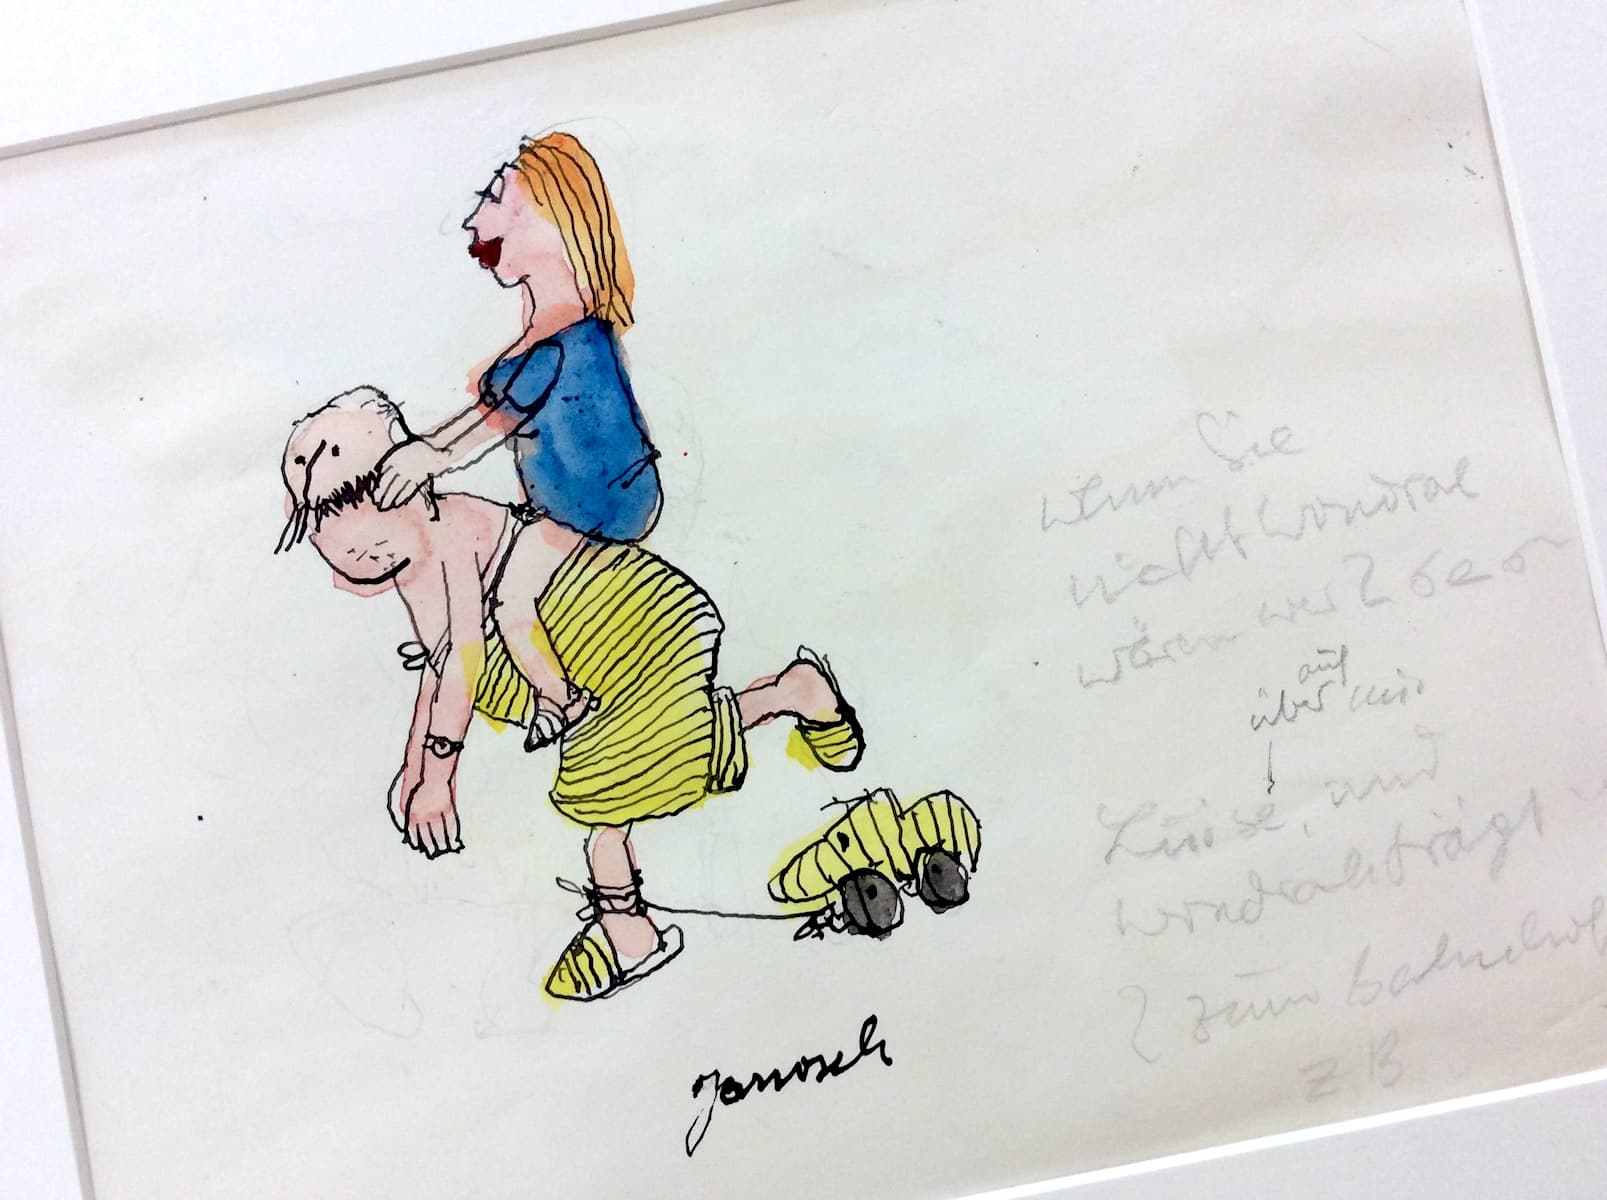 Wenn Sie
nicht Wondrak
wären wer
auf
über mir
Luise, und
Wondrak trägt
zum Bahnhof
z B
Janosch